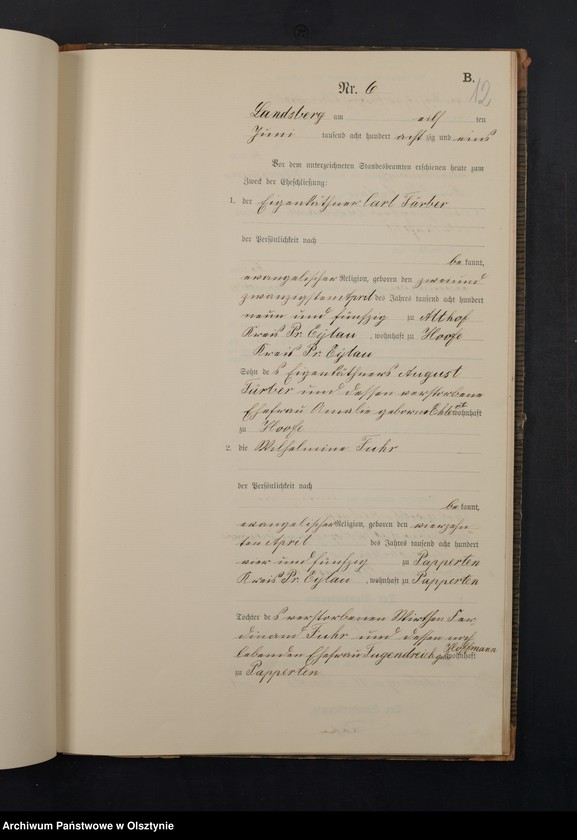 B.
12
Nr. 6
Landsberg am elf ten
Juni tausend acht hundert acht zig und eins
Vor dem unterzeichneten Standesbeamten erschienen heute zum
Zweck der Eheschließung:
1. der Eigenkäthner Carl Färber
der Persönlichkeit nach
be kannt,
evangelischer Religion, geboren den zweiund
zwanzigsten April des Jahres tausend acht hundert
neun und fünfzig zu Althof
Kreis Pr. Eylau, wohnhaft zu Hoofe
Kreis Pr. Eylau
Sohn des Eigenkäthners August
Färber und dessen verstorbene
Ehefrau Amalie geborne Ehlert wohnhaft
zu Hoofe
2. die Wilhelmine Fuhr
der Persönlichkeit nach
be kannt,
evangelischer Religion, geboren den vierzehn
ten April des Jahres tausend acht hundert
vier und fünfzig zu Papperten
Kreis Pr. Eylau, wohnhaft zu Papperten
Tochter des verstorbenen Wirthen Fer
dinand Fuhr und dessen noch
lebenden Ehefrau Jugendreich geb Hoffmann wohnhaft
zu Papperten
Archiwum Państwowe w Olsztynie